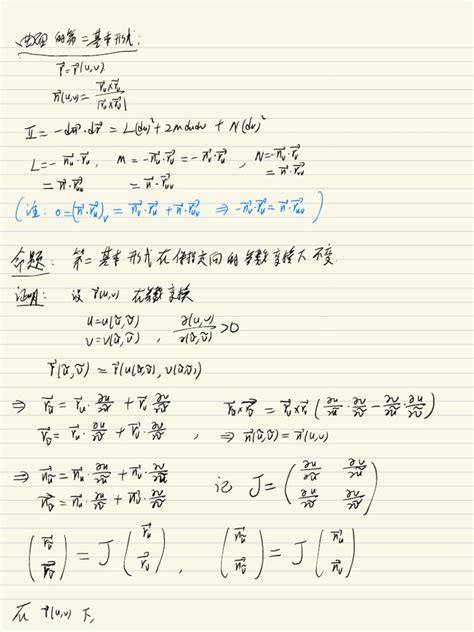 曲面的第二基本形式:
r⃗=r⃗(u,v)
n⃗(u,v)= r⃗u×r⃗v / |r⃗u×r⃗v|
Ⅱ=-dn⃗·dr⃗ = L(du)²+2Mdudv + N(dv)²
L=-n⃗u·r⃗u , M=-n⃗u·r⃗v=-n⃗v·r⃗u , N=-n⃗v·r⃗v
=n⃗·r⃗uu =n⃗·r⃗uv =n⃗·r⃗vv
(注: 0=(n⃗·r⃗u)v = n⃗v·r⃗u + n⃗·r⃗uv ⇒ -n⃗v·r⃗u=n⃗·r⃗uv)
命题: 第二基本形式在保持定向的参数变换下不变.
证明: 设 r⃗(u,v) 在参数变换
u=u(ũ,ṽ)
v=v(ũ,ṽ) , ∂(u,v)/∂(ũ,ṽ)>0
r⃗(ũ,ṽ)=r⃗(u(ũ,ṽ), v(ũ,ṽ))
⇒ r⃗ũ = r⃗u·∂u/∂ũ + r⃗v·∂v/∂ũ r⃗ũ×r⃗ṽ = r⃗u×r⃗v(∂u/∂ũ·∂v/∂ṽ-∂v/∂ũ·∂u/∂ṽ)
r⃗ṽ = r⃗u·∂u/∂ṽ + r⃗v·∂v/∂ṽ , ⇒ n⃗(ũ,ṽ)=n⃗(u,v)
⇒ n⃗ũ=n⃗u·∂u/∂ũ+n⃗v·∂v/∂ũ 记 J=(∂u/∂ũ ∂v/∂ũ
n⃗ṽ=n⃗u·∂u/∂ṽ+n⃗v·∂v/∂ṽ ∂u/∂ṽ ∂v/∂ṽ)
(r⃗ũ r⃗ṽ)=J(r⃗u r⃗v) , (n⃗ũ n⃗ṽ)=J(n⃗u n⃗v)
在 r⃗(u,v) 下,